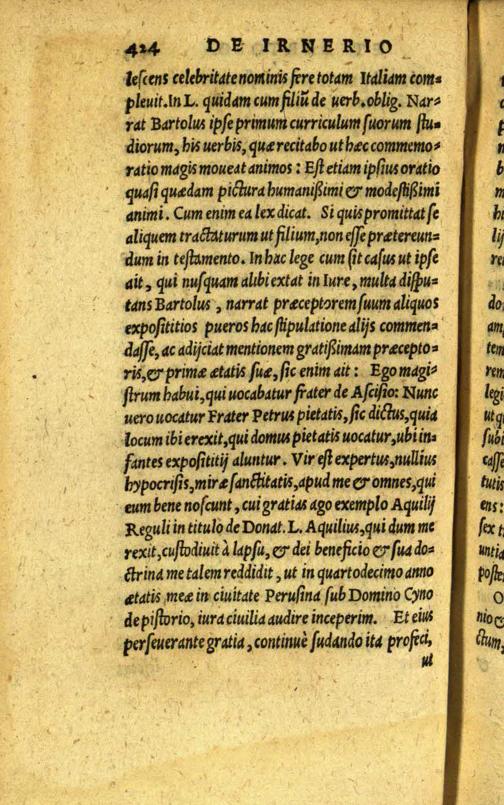 424 DE IRNERIO
lescens celebritate nominis fere totam Italiam com=
pleuit. In L. quidam cum filiũ de uerb. oblig. Nar=
rat Bartolus ipse primum curriculum suorum stu=
diorum, his uerbis, quæ recitabo ut hæc commemo=
ratio magis moueat animos: Est etiam ipsius oratio
quasi quædam pictura humanißimi & modestißimi
animi. Cum enim ea lex dicat. Si quis promittat se
aliquem tractaturum ut filium, non esse prætereun=
dum in testamento. In hac lege cum sit casus ut ipse
ait, qui nusquam alibi extat in Iure, multa dispu=
tans Bartolus, narrat præceptorem suum aliquos
exposititios pueros hac stipulatione alijs commen=
dasse, ac adijciat mentionem gratißimam præcepto=
ris, & primæ ætatis suæ, sic enim ait: Ego magi=
strum habui, qui uocabatur frater de Ascisio: Nunc
uero uocatur Frater Petrus pietatis, sic dictus, quia
locum ibi erexit, qui domus pietatis uocatur, ubi in=
fantes exposititij aluntur. Vir est expertus, nullius
hypocrisis, miræ sanctitatis, apud me & omnes, qui
eum bene noscunt, cui gratias ago exemplo Aquilij
Reguli in titulo de Donat. L. Aquilius, qui dum me
rexit, custodiuit à lapsu, & dei beneficio & sua do=
ctrina me talem reddidit, ut in quartodecimo anno
ætatis meæ in ciuitate Perusina sub Domino Cyno
de pistorio, iura ciuilia audire inceperim. Et eius
perseuerante gratia, continuè sudando ita profeci,
ut